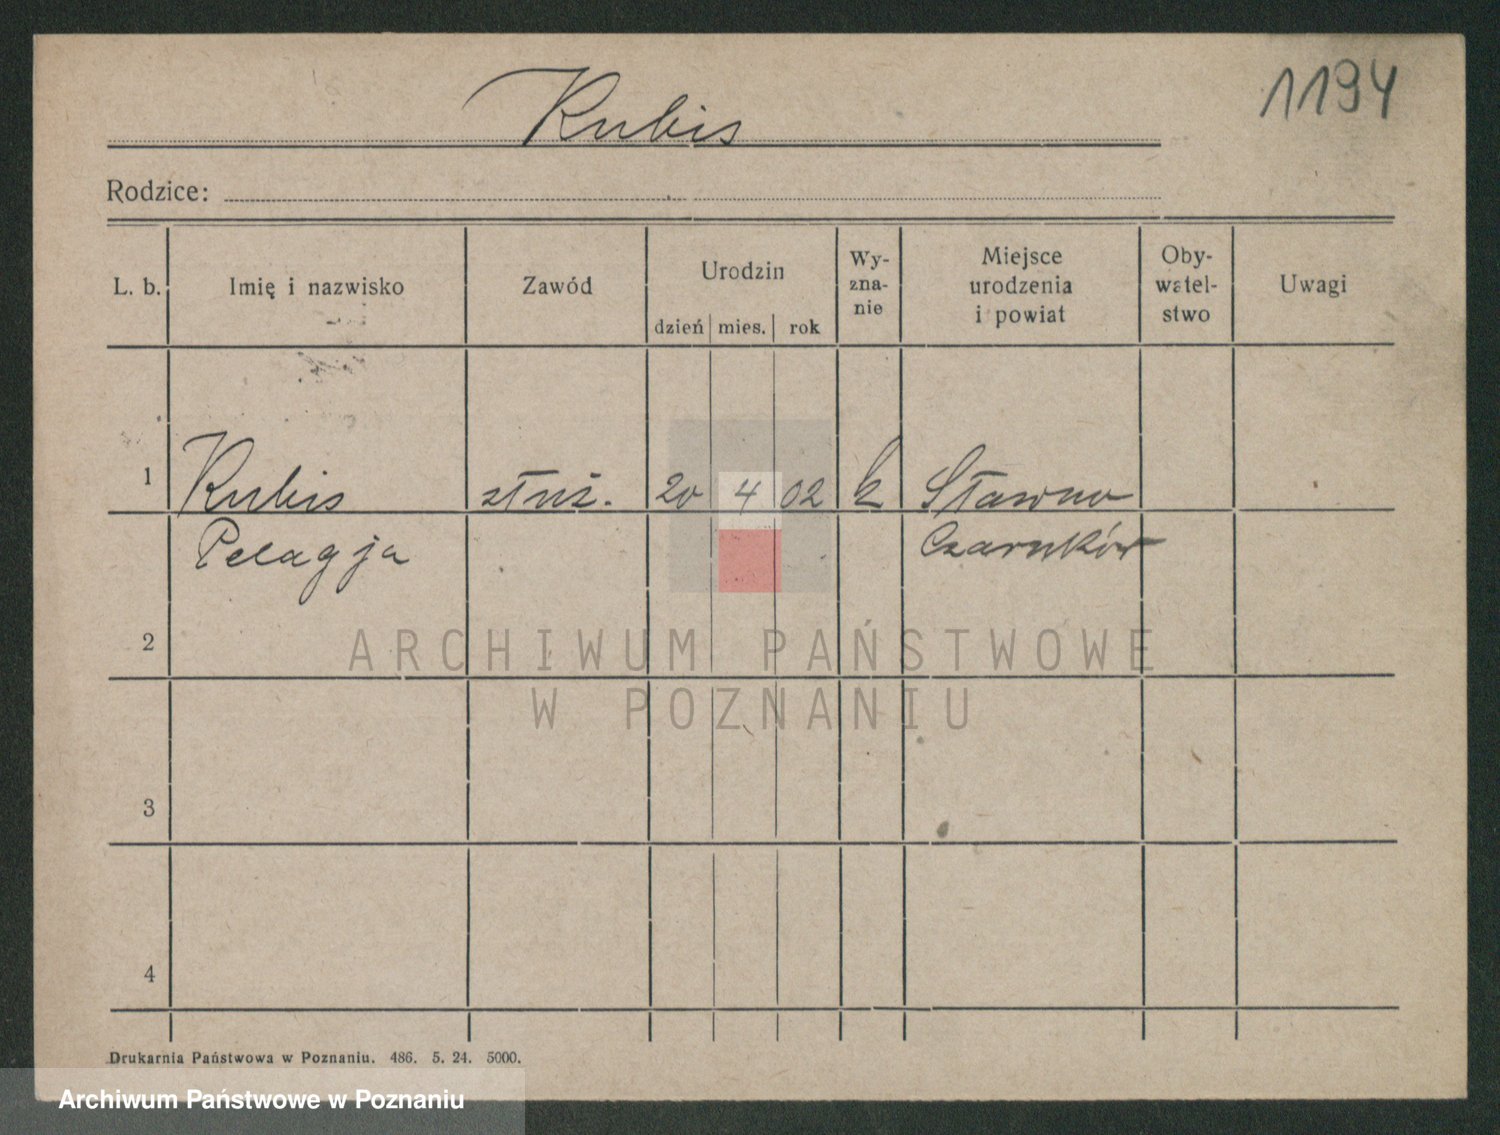 1194
Kubis
Rodzice:
L. b. Imię i nazwisko Zawód Urodzin dzień mies. rok Wy-zna-nie Miejsce urodzenia i powiat Oby-watel-stwo Uwagi
1 Kubis służ. 20 4 02 k Sławno
Pelagja Czarnków
2
ARCHIWUM PAŃSTWOWE
W POZNANIU
3
4
Drukarnia Państwowa w Poznaniu. 486. 5. 24. 5000.
Archiwum Państwowe w Poznaniu